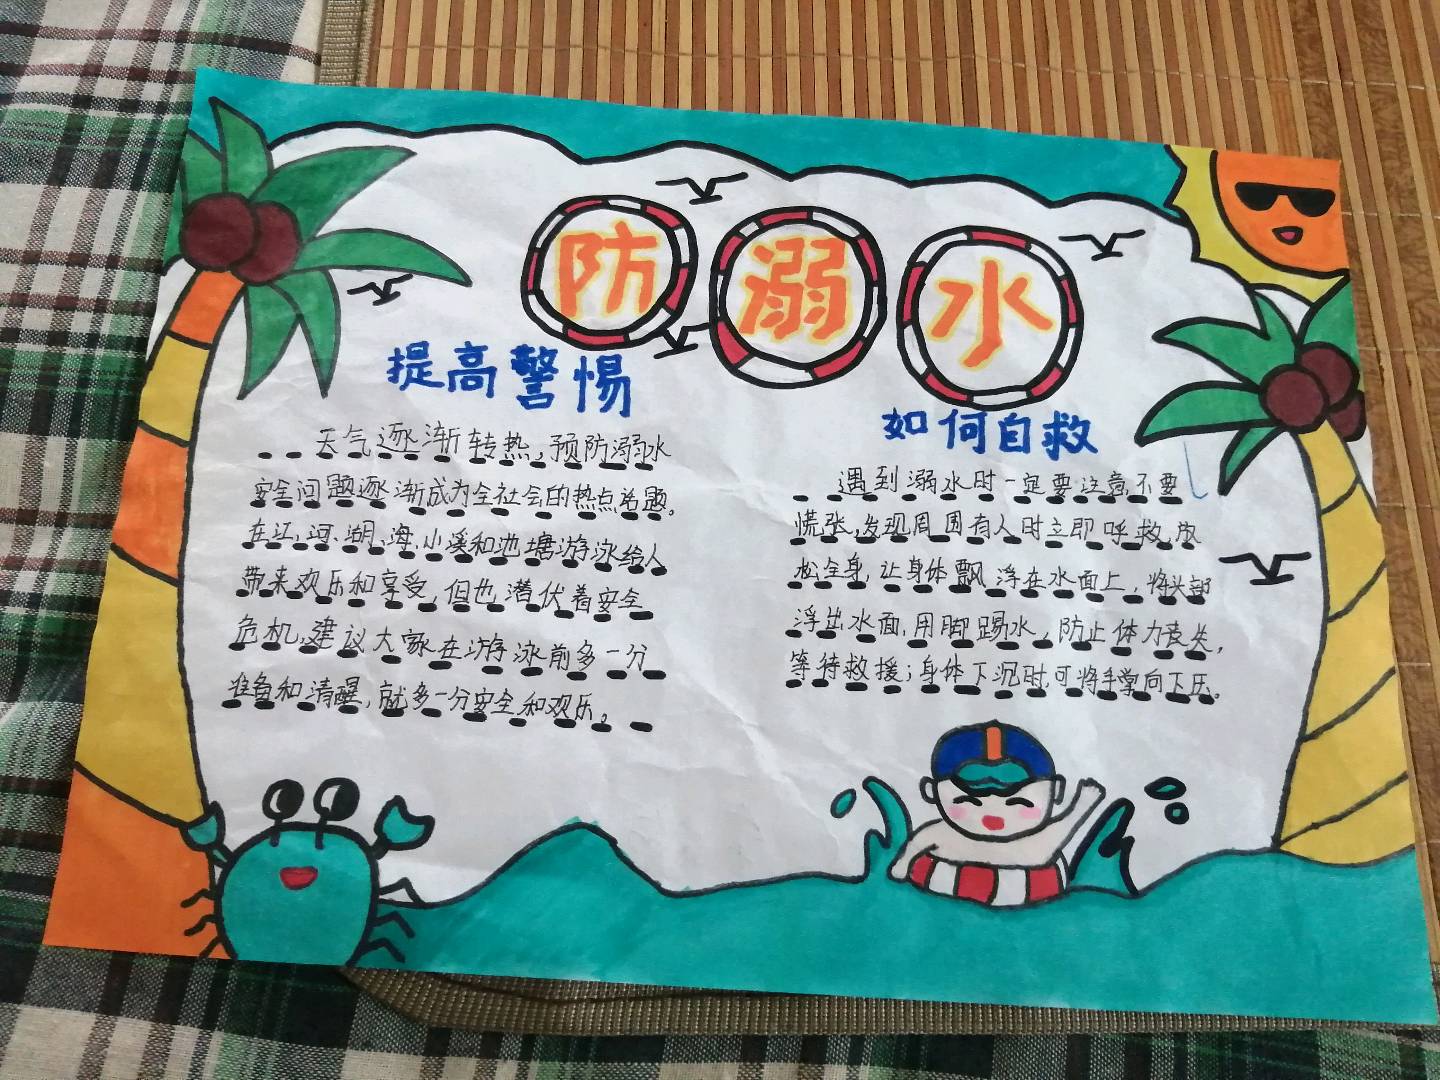 防溺水
提高警惕
天气逐渐转热,预防溺水
安全问题逐渐成为全社会的热点话题。
在江,河,湖,海,小溪和池塘游泳给人
带来欢乐和享受,但也潜伏着安全
危机,建议大家在游泳前多一分
准备和清醒,就多一分安全和欢乐。
如何自救
遇到溺水时一定要注意不要
慌张,发现周围有人时立即呼救,放
松全身,让身体飘浮在水面上,将头部
浮出水面,用脚踢水,防止体力丧失,
等待救援;身体下沉时,可将手掌向下压。